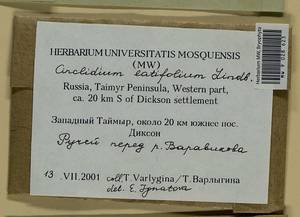 HERBARIUM UNIVERSITATIS MOSQUENSIS
(MW)
Arctidium latifolium Lindb.
Russia, Taimyr Peninsula, Western part,
ca. 20 km S of Dickson settlement
Западный Таймыр, около 20 км южнее пос.
Диксон
Ручей перед р. Варавикова
13 .VII.2001 coll. T. Varlygina / Т. Варлыгина
det. E. Ignatova
Herbarium MW, Bryophyta
MW 9 026 623